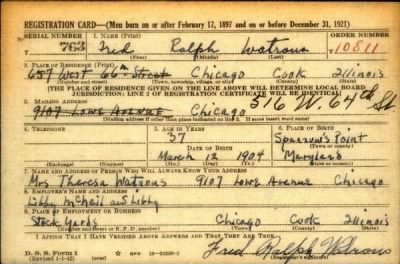 REGISTRATION CARD—(Men born on or after February 17, 1897 and on or before December 31, 1921)
SERIAL NUMBER 1. NAME (Print) ORDER NUMBER
763 Fred Ralph Watrous 10811
(First) (Middle) (Last)
2. PLACE OF RESIDENCE (Print)
657 West 66th Street Chicago Cook Illinois
(THE PLACE OF RESIDENCE GIVEN ON THE LINE ABOVE WILL DETERMINE LOCAL BOARD
JURISDICTION; LINE 2 OF REGISTRATION CERTIFICATE WILL BE IDENTICAL)
3. MAILING ADDRESS 516 W. 64th St
9107 Lowe Avenue Chicago
4. TELEPHONE 5. AGE IN YEARS 6. PLACE OF BIRTH
37 Sparrow's Point
DATE OF BIRTH
March 12 1904 Maryland
(Exchange) (Number) (Mo.) (Day) (Yr.) (State or country)
7. NAME AND ADDRESS OF PERSON WHO WILL ALWAYS KNOW YOUR ADDRESS
Mrs Theresa Watrous 9107 Lowe Avenue Chicago
8. EMPLOYER'S NAME AND ADDRESS
Libby McNeil and Libby
9. PLACE OF EMPLOYMENT OR BUSINESS
Stock Yards Chicago Cook Illinois
(Number and street or R. F. D. number) (Town) (County) (State)
I AFFIRM THAT I HAVE VERIFIED ABOVE ANSWERS AND THAT THEY ARE TRUE.
D. S. S. Form 1
(Revised 1-1-42) GPO Fred Ralph Watrous